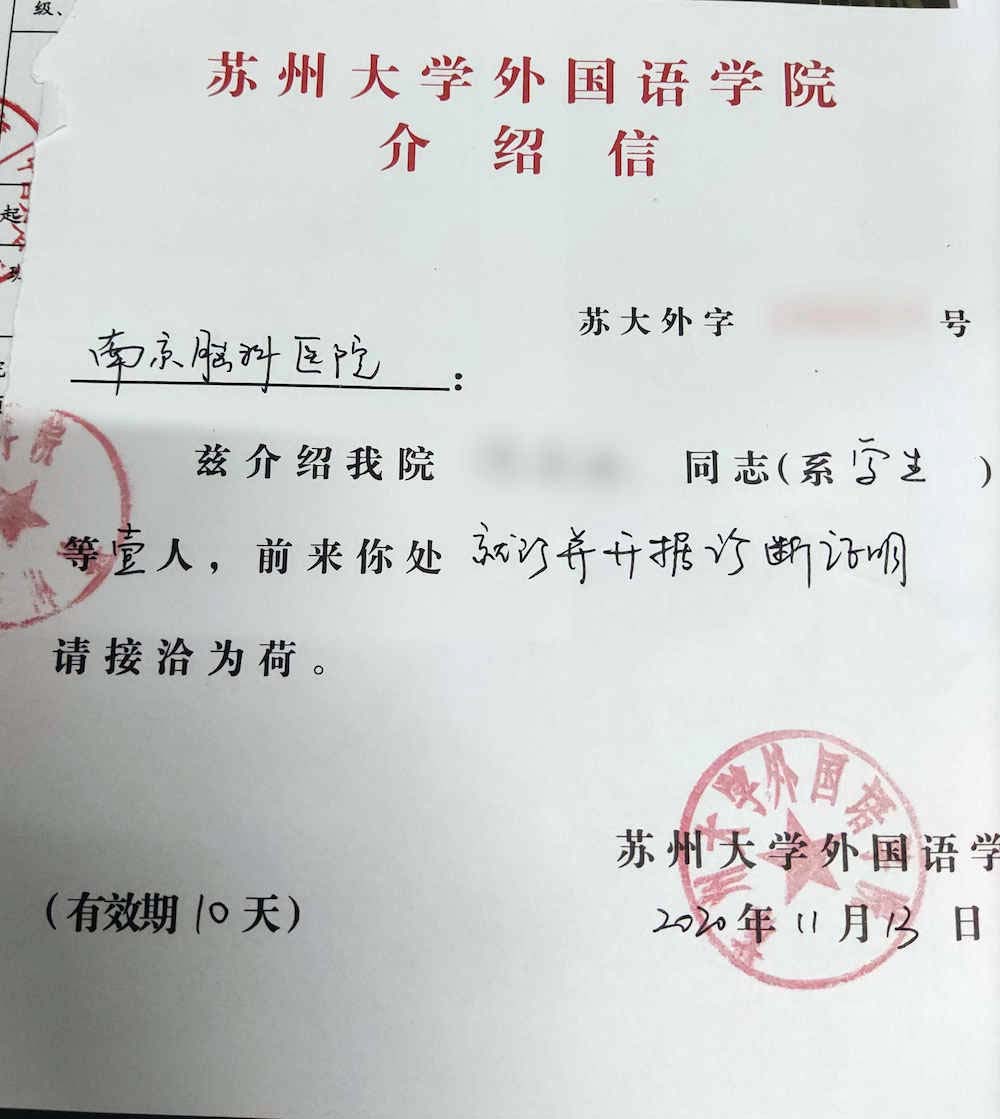 级、
苏州大学外国语学院
介绍信
苏大外字 号
南京脑科医院:
兹介绍我院 同志(系学生 )
等壹人，前来你处 就诊并开据诊断证明
请接洽为荷。
苏州大学外国语学
(有效期10天)
2020年11月13日
苏州大学外国语学院
起